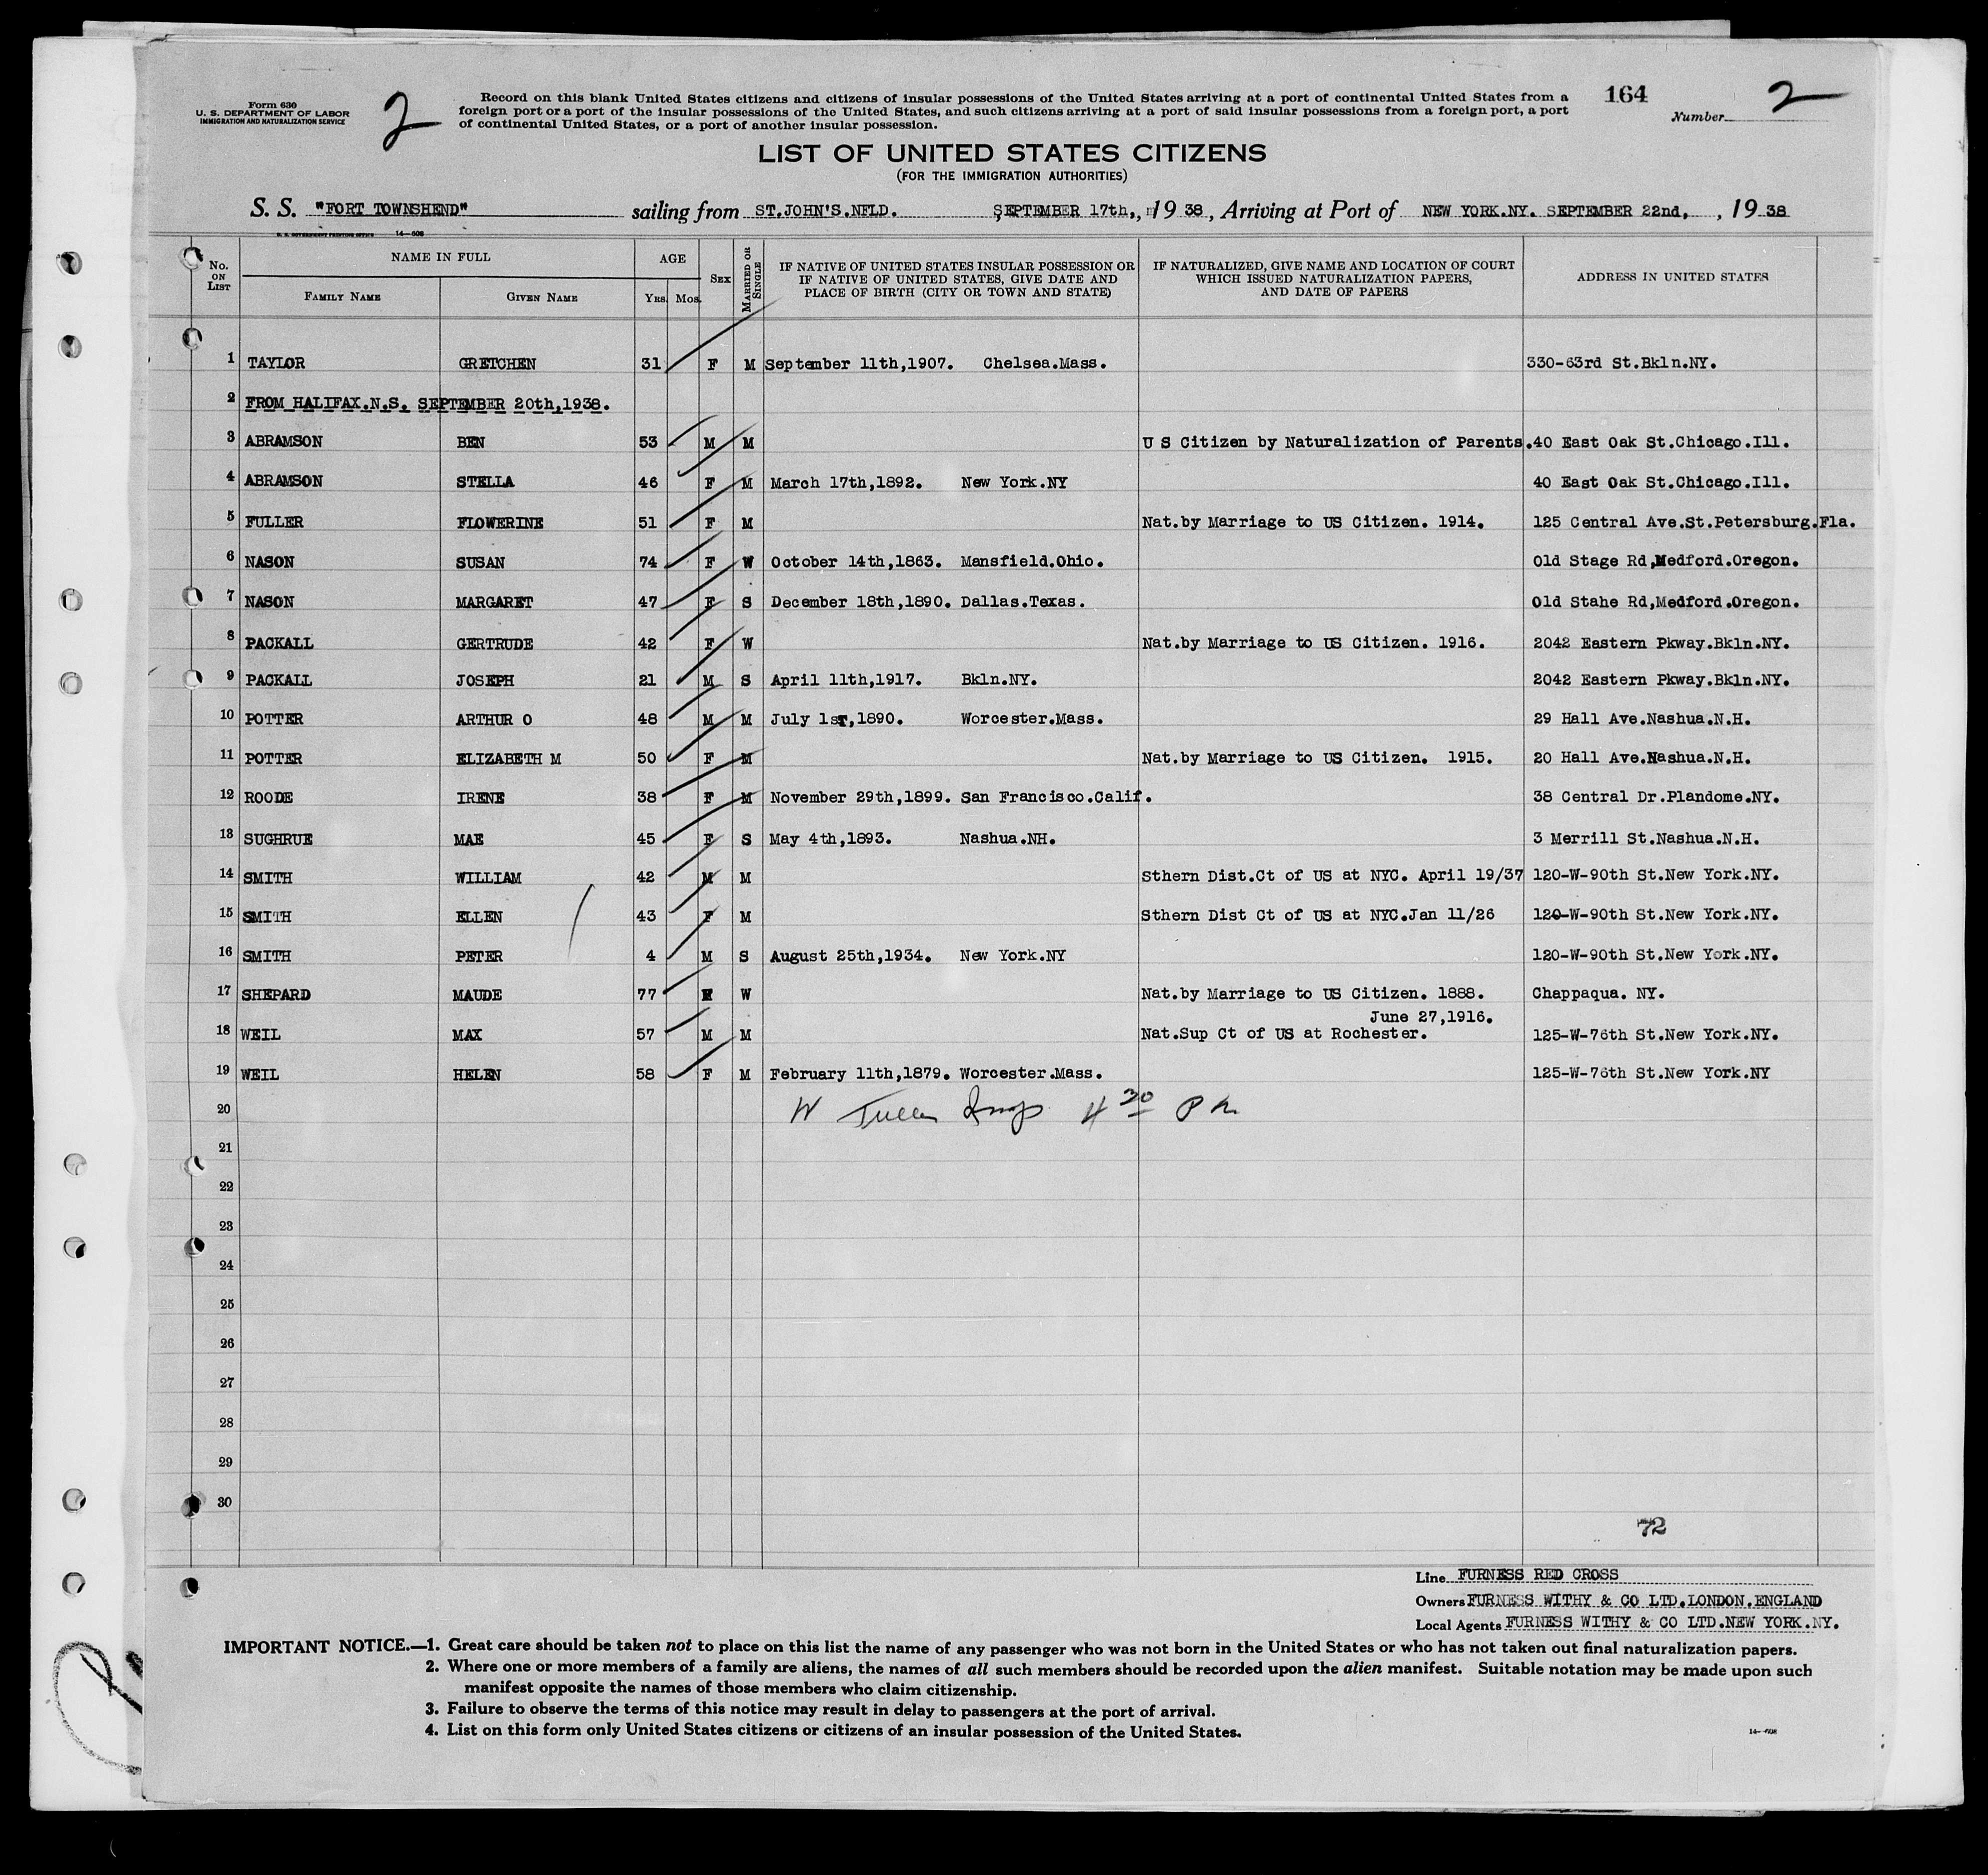 Form 630
U. S. DEPARTMENT OF LABOR
IMMIGRATION AND NATURALIZATION SERVICE
2
Record on this blank United States citizens and citizens of insular possessions of the United States arriving at a port of continental United States from a
foreign port or a port of the insular possessions of the United States, and such citizens arriving at a port of said insular possessions from a foreign port, a port
of continental United States, or a port of another insular possession.
164
Number 2
LIST OF UNITED STATES CITIZENS
(FOR THE IMMIGRATION AUTHORITIES)
S. S. "FORT TOWNSHEND" sailing from ST.JOHN'S.NFLD. SEPTEMBER 17th,, 19 38, Arriving at Port of NEW YORK.NY. SEPTEMBER 22nd, , 19 38
U. S. GOVERNMENT PRINTING OFFICE 14—608
No. ON LIST
NAME IN FULL
FAMILY NAME
GIVEN NAME
AGE
YRS. MOS.
SEX
MARRIED OR SINGLE
IF NATIVE OF UNITED STATES INSULAR POSSESSION OR
IF NATIVE OF UNITED STATES, GIVE DATE AND
PLACE OF BIRTH (CITY OR TOWN AND STATE)
IF NATURALIZED, GIVE NAME AND LOCATION OF COURT
WHICH ISSUED NATURALIZATION PAPERS,
AND DATE OF PAPERS
ADDRESS IN UNITED STATES
1 TAYLOR GRETCHEN 31 F M September 11th,1907. Chelsea.Mass. 330-63rd St.Bkln.NY.
2 FROM HALIFAX.N.S. SEPTEMBER 20th,1938.
3 ABRAMSON BEN 53 M M U S Citizen by Naturalization of Parents. 40 East Oak St.Chicago.Ill.
4 ABRAMSON STELLA 46 F M March 17th,1892. New York.NY 40 East Oak St.Chicago.Ill.
5 FULLER FLOWERINE 51 F M Nat.by Marriage to US Citizen. 1914. 125 Central Ave.St.Petersburg.Fla.
6 NASON SUSAN 74 F W October 14th,1863. Mansfield.Ohio. Old Stage Rd,Medford.Oregon.
7 NASON MARGARET 47 F S December 18th,1890. Dallas.Texas. Old Stahe Rd,Medford.Oregon.
8 PACKALL GERTRUDE 42 F W Nat.by Marriage to US Citizen. 1916. 2042 Eastern Pkway.Bkln.NY.
9 PACKALL JOSEPH 21 M S April 11th,1917. Bkln.NY. 2042 Eastern Pkway.Bkln.NY.
10 POTTER ARTHUR O 48 M M July 1st,1890. Worcester.Mass. 29 Hall Ave.Nashua.N.H.
11 POTTER ELIZABETH M 50 F M Nat.by Marriage to US Citizen. 1915. 20 Hall Ave.Nashua.N.H.
12 ROODE IRENE 38 F M November 29th,1899. San Francisco.Calif. 38 Central Dr.Plandome.NY.
13 SUGHRUE MAE 45 F S May 4th,1893. Nashua.NH. 3 Merrill St.Nashua.N.H.
14 SMITH WILLIAM 42 M M Sthern Dist.Ct of US at NYC. April 19/37 120-W-90th St.New York.NY.
15 SMITH ELLEN 43 F M Sthern Dist Ct of US at NYC.Jan 11/26 120-W-90th St.New York.NY.
16 SMITH PETER 4 M S August 25th,1934. New York.NY 120-W-90th St.New York.NY.
17 SHEPARD MAUDE 77 F W Nat.by Marriage to US Citizen. 1888. Chappaqua. NY.
June 27,1916.
18 WEIL MAX 57 M M Nat.Sup Ct of US at Rochester. 125-W-76th St.New York.NY.
19 WEIL HELEN 58 F M February 11th,1879. Worcester.Mass. 125-W-76th St.New York.NY
20 W 4 30 P m
21
22
23
24
25
26
27
28
29
30
72
Line FURNESS RED CROSS
Owners FURNESS WITHY & CO LTD.LONDON.ENGLAND
Local Agents FURNESS WITHY & CO LTD.NEW YORK.NY.
IMPORTANT NOTICE.—1. Great care should be taken not to place on this list the name of any passenger who was not born in the United States or who has not taken out final naturalization papers.
2. Where one or more members of a family are aliens, the names of all such members should be recorded upon the alien manifest. Suitable notation may be made upon such
manifest opposite the names of those members who claim citizenship.
3. Failure to observe the terms of this notice may result in delay to passengers at the port of arrival.
4. List on this form only United States citizens or citizens of an insular possession of the United States.
14—608